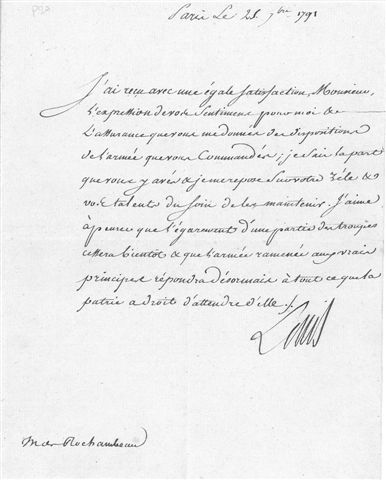 Paris Le 25 7bre 1791
J'ai reçu avec une égale satisfaction, Monsieur,
L'expression de vos Sentimens pour moi &
L'assurance que vous me donnés des dispositions
de l'armée que vous Commandés; je sais la part
que vous y avés & je me repose sur votre Zéle &
vos talents du soin de les maintenir. J'aime
à penser que l'égarement d'une partie des troupes
cessera bientot & que l'armée ramenée aux vrais
principes répondra désormais à tout ce que la
patrie a droit d'attendre d'elle./.
Louis
M. de Rochambeau